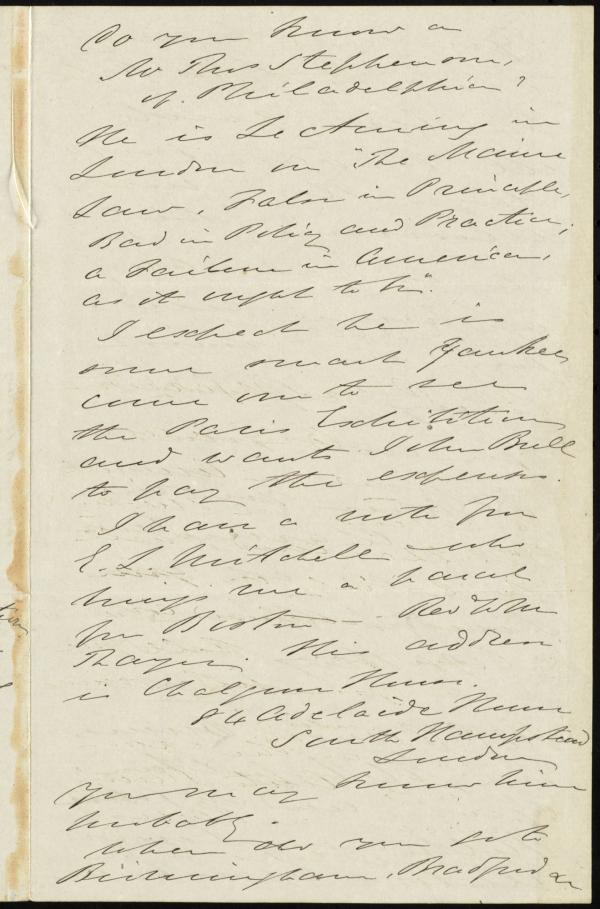 Do you know a
Mr Thos Stephenson,
of Philadelphia?
He is Lecturing in
London on "The Maine
Law, False in Principle,
Bad in Policy and Practice,
a Failure in America,
as it ought to be".
I expect he is
some smart Yankee
come over to see
the Paris Exhibition
and wants John Bull
to pay the expenses.
I have a note from
E. L. Mitchell who
brings me a parcel
from Boston - Revd Wm
Thayer. His address
is House.
84 Adelaide
South Hampstead
London
you may know him
probably.
When do you go to
Birmingham, Bradford &c